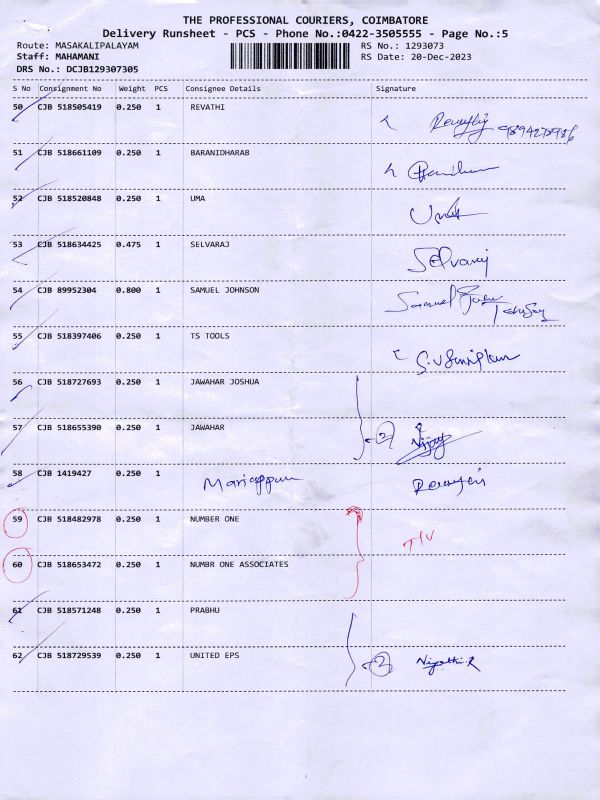 THE PROFESSIONAL COURIERS, COIMBATORE
Delivery Runsheet - PCS - Phone No.:0422-3505555 - Page No.:5
Route: MASAKALIPALAYAM RS No.: 1293073
Staff: MAHAMANI RS Date: 20-Dec-2023
DRS No.: DCJB129307305
S No Consignment No Weight PCS Consignee Details Signature
50 CJB 518505419 0.250 1 REVATHI
51 CJB 518661109 0.250 1 BARANIDHARAB
52 CJB 518520848 0.250 1 UMA Uma
53 CJB 518634425 0.475 1 SELVARAJ Selvaraj
54 CJB 89952304 0.800 1 SAMUEL JOHNSON Samuel
55 CJB 518397406 0.250 1 TS TOOLS
56 CJB 518727693 0.250 1 JAWAHAR JOSHUA
57 CJB 518655390 0.250 1 JAWAHAR 2 Vijay
58 CJB 1419427 0.250 1 Mariappan
59 CJB 518482978 0.250 1 NUMBER ONE
T/V
60 CJB 518653472 0.250 1 NUMBR ONE ASSOCIATES
61 CJB 518571248 0.250 1 PRABHU
62 CJB 518729539 0.250 1 UNITED EPS 2